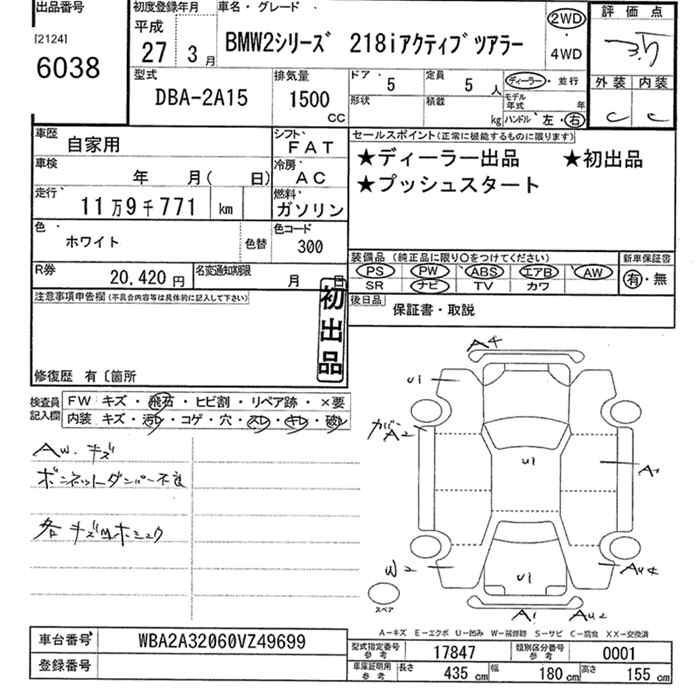 出品番号
[2124]
6038
初度登録年月
平成
27 3月
車名・グレード
BMW2シリーズ 218iアクティブツアラー
2WD
・
4WD
評価点
3.5
外装 内装
C C
型式
DBA-2A15
排気量
1500
CC
ドア 5
定員 5人
ディーラー・並行
形状
積載 kg
モデル年式 年
ハンドル 左・右
車歴
自家用
シフト
FAT
車検
年 月( 日)
冷房
AC
走行
11万9千771 km
燃料
ガソリン
色
ホワイト
色替
色コード
300
R券
20,420円
名変通知期限
月 日
セールスポイント(正常に機能するものに限ります)
★ディーラー出品 ★初出品
★プッシュスタート
装備品 (純正品に限り〇をつけてください)
PS PW ABS エアB AW
SR ナビ TV カワ
新車保証書
有・無
後日品
保証書・取説
注意事項申告欄(不具合内容等は具体的に記入して下さい)
初出品
修復歴 有〔箇所
検査員記入欄
FW キズ・飛石・ヒビ割・リペア跡・×要
内装 キズ・汚レ・コゲ・穴・スレ・キレ・破レ
AW.キズ
ボンネットダンパー不良
各キズ
A4
U1
A2
U1
A1
W2
U1
A4
スペア
A1 AU2
A-キズ E-エクボ U-凹み W-補修跡 S-サビ C-腐食 XX-交換済
車台番号
WBA2A32060VZ49699
登録番号
型式指定番号 参考
17847
類別区分番号 参考
0001
車庫証明用 参考
長さ 435 cm
幅 180 cm
高さ 155 cm